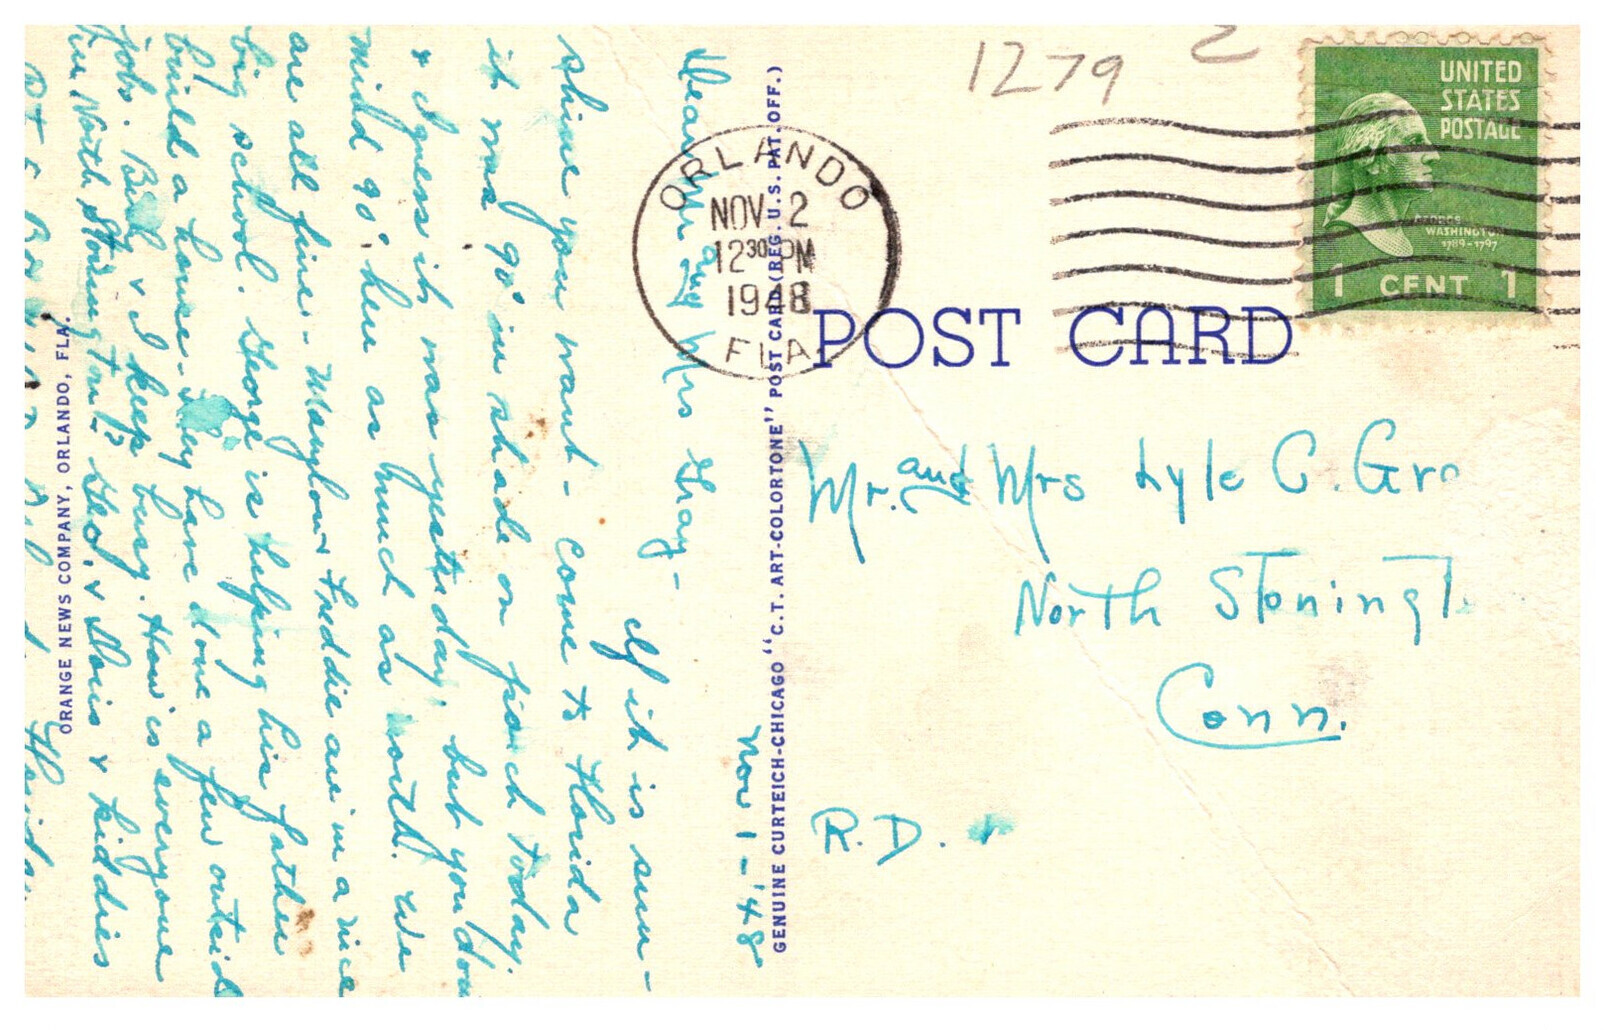 1279
2
UNITED
STATES
POSTAGE
GEORGE
WASHINGTON
1789-1797
1 CENT 1
ORLANDO
NOV 2
12 30 PM
1948
FLA.
POST CARD
Mr. and Mrs Lyle C. Gra
North Stoningt
Conn.
R.D.
GENUINE CURTEICH-CHICAGO "C.T. ART-COLORTONE" POST CARD (REG. U.S. PAT. OFF.)
Nov 1 - '48
Dear Mr and Mrs Gray -
If it is sun-
shine you want - Come to Florida
it was 90° in shade on porch today.
& I guess it was yesterday, but you don
mind 90° here as much as north. We
are all fine - Marylou & Freddie are in a nice
big school. George is helping his father
build a house - They have done a few outsid
jobs. Billy & I keep busy. How is everyone
in North Stonington? Geo. & Doris & kiddies
Florida.
ORANGE NEWS COMPANY, ORLANDO, FLA.